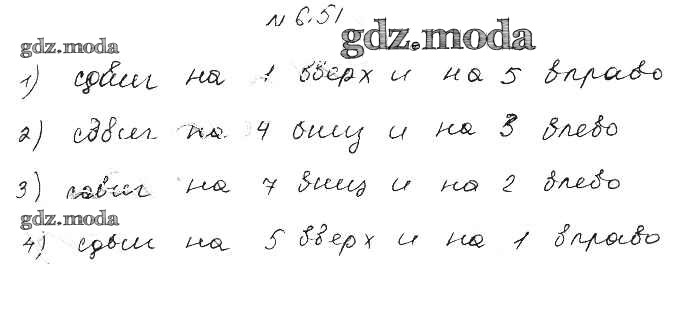 N 6.51
gdz.moda
gdz.moda
1) сдвиг на 1 вверх и на 5 вправо
2) сдвиг на 4 вниз и на 3 влево
3) сдвиг на 7 вниз и на 2 влево
gdz.moda
4) сдвиг на 5 вверх и на 1 вправо